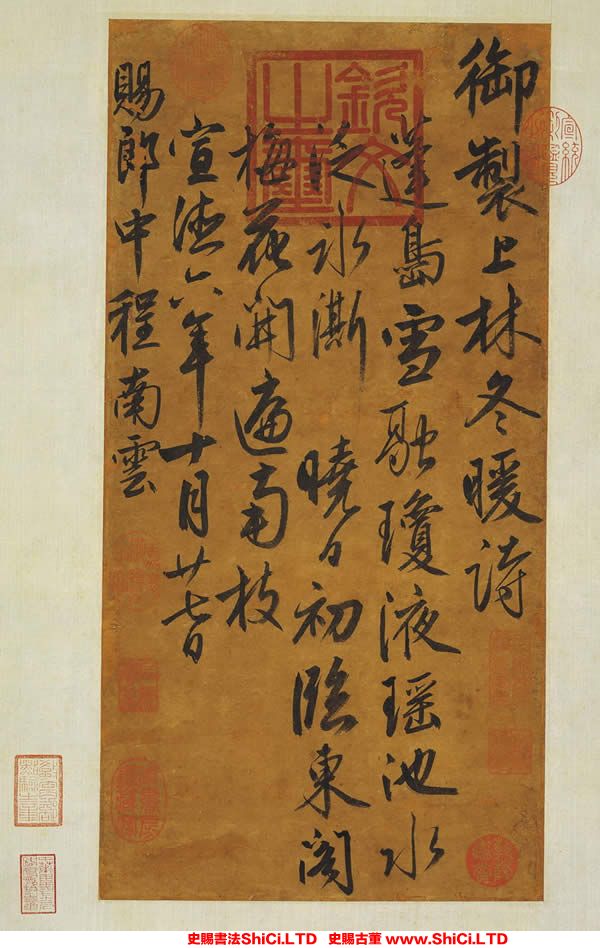 御製上林冬暖詩
蓬島雪融瓊液瑶池水
泛氷澌 曉日初臨東閣
梅花開遍南枝
宣德六年十月廿七日
賜郎中程南雲
欽文之璽
史賜書法ShiCi.LTD 史賜古董 www.ShiCi.LTD